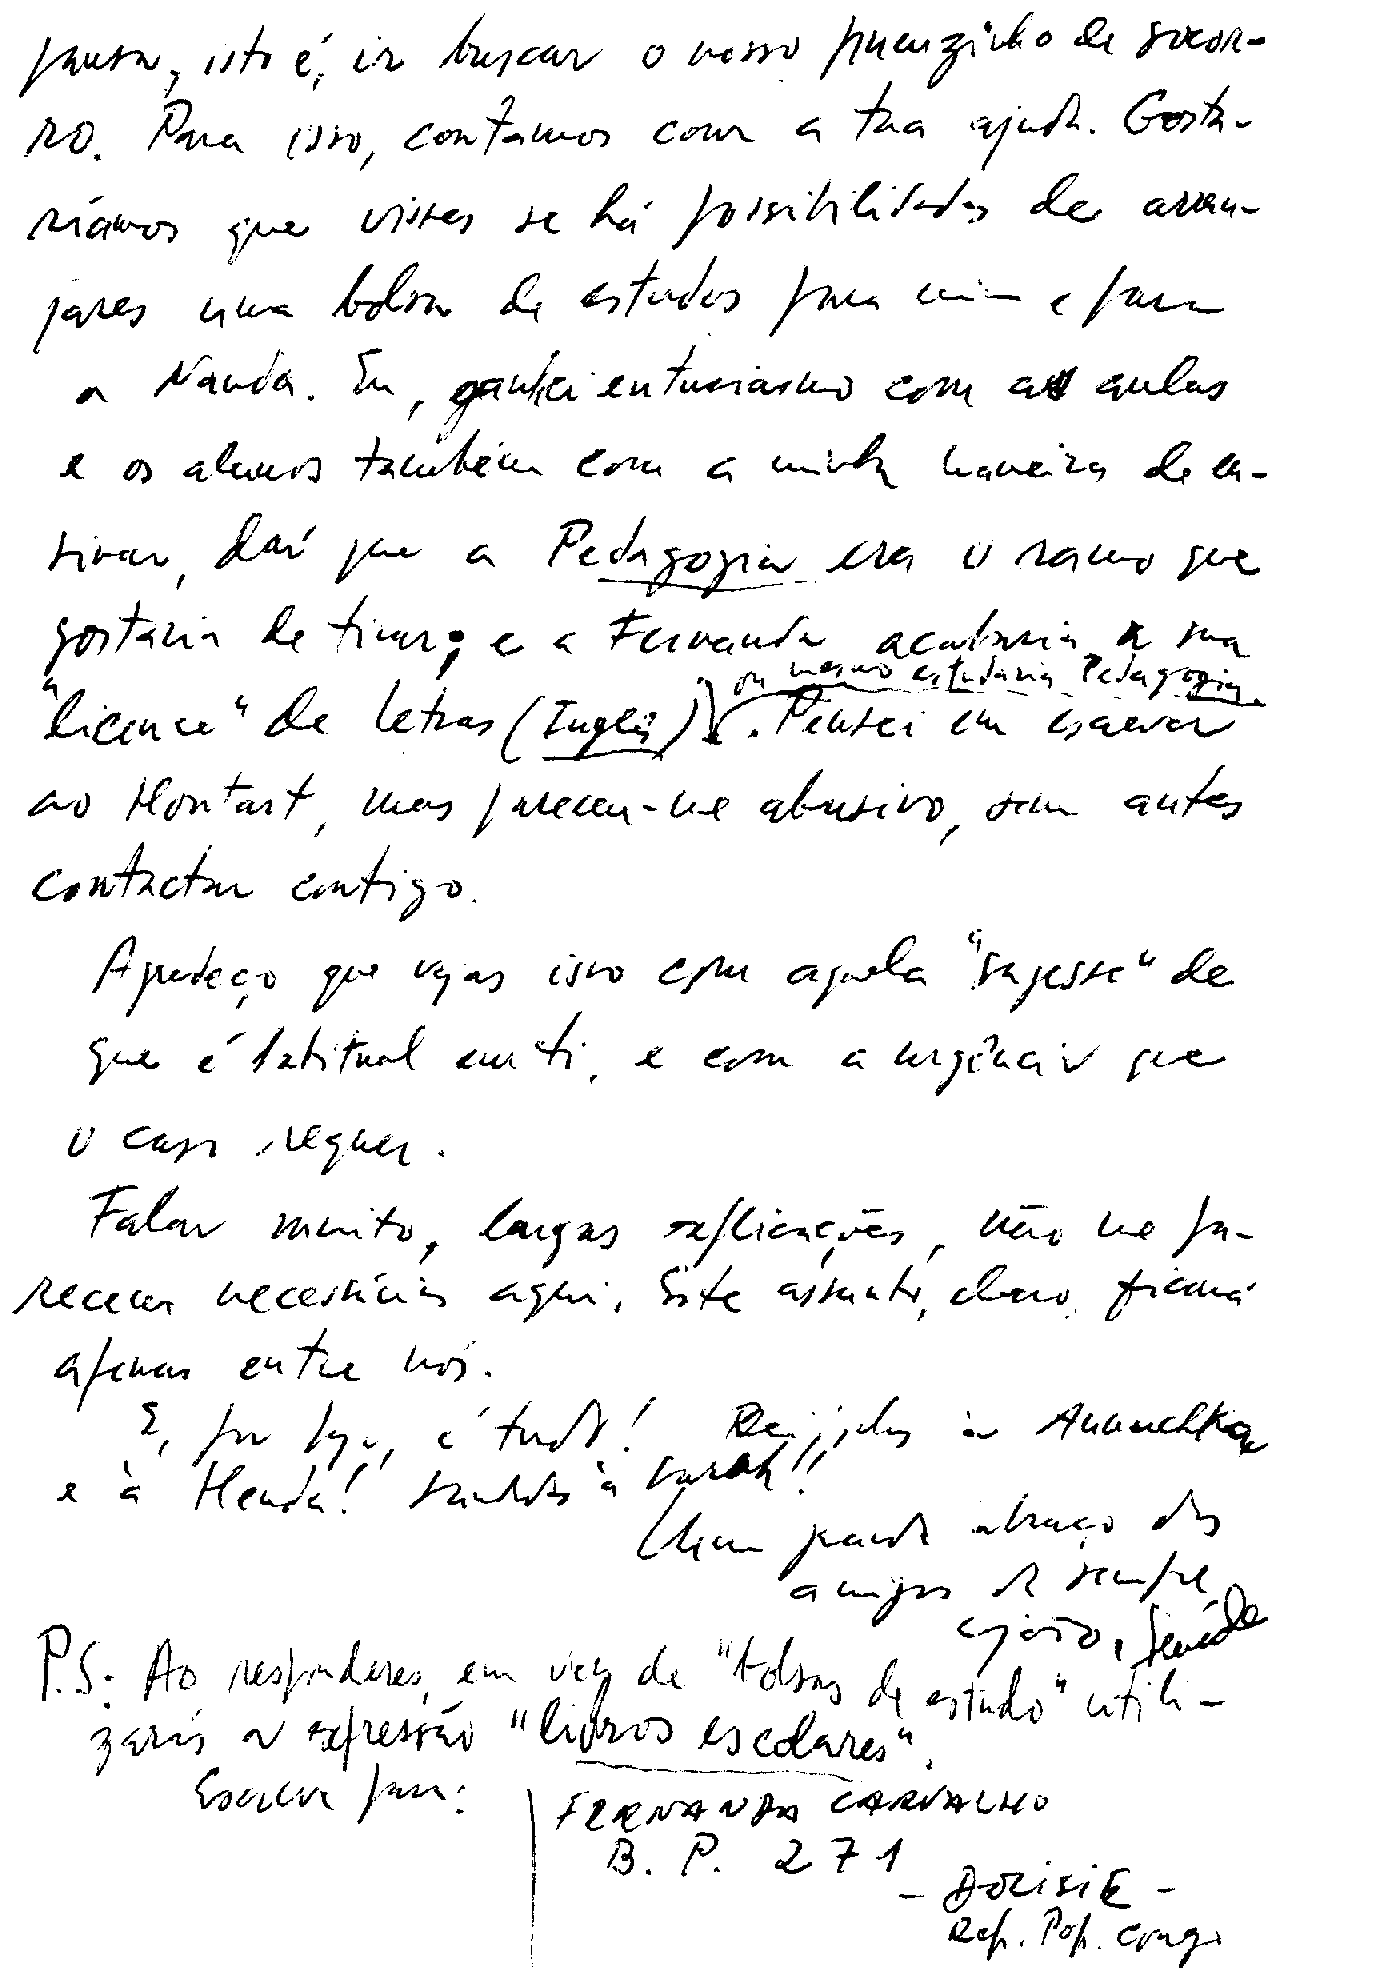 pausa, isto é, ir buscar o nosso pneuzinho de socor-
ro. Para isso, contamos com a tua ajuda. Gosta-
ríamos que visses se há possibilidades de arran-
jares uma bolsa de estudos para mim e para
a Nanda. Eu, ganhei entusiasmo com as aulas
e os alunos também com a minha maneira de en-
sinar, daí que a Pedagogia era o ramo que
gostaria de tirar; e a Fernanda acabaria a sua
ou mesmo estudaria Pedagogia
"licence" de letras (Inglês). Pensei em escrever
ao Montast, mas pareceu-me abusivo, sem antes
contactar contigo.
Agradeço que vejas isso com aquela "sagesse" de
que é habitual em ti, e com a urgência que
o caso requer.
Falar muito, largas explicações, não me pa-
recem necessárias aqui. Este assunto, claro, ficará
apenas entre nós.
E, por hoje, é tudo! Beijolas à Anuschka
e à Henda! Saudades à Sarah!!
Um grande abraço dos
amigos de sempre
P.S: Ao responderes, em vez de "bolsas de estudo" utili-
zarás a expressão "livros escolares".
Escreve para:
FERNANDA CARVALHO
B. P. 271
- DOLISIE -
Rep. Pop. Congo